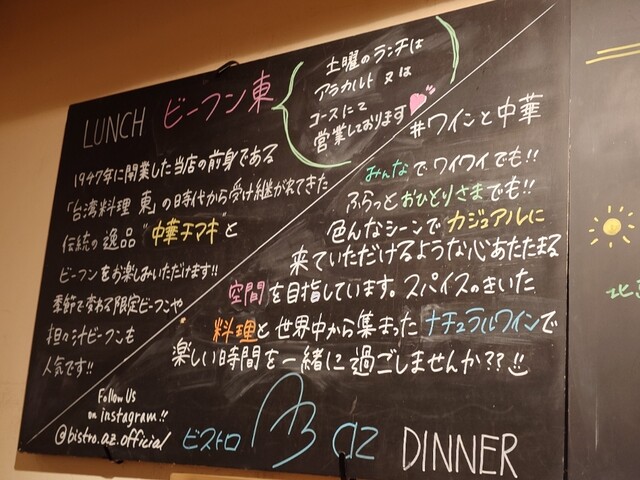 LUNCH ビーフン東
土曜のランチは
アラカルト 又は
コースにて
営業しております
1947年に開業した当店の前身である
「台湾料理 東」の時代から受け継がれてきた
伝統の逸品 "中華チマキ" と
ビーフンをお楽しみいただけます!!
季節で変わる限定ビーフンや
担々汁ビーフンも
人気です!!
Follow Us
on instagram!!
@bistro.az.official
#ワインと中華
みんなでワイワイでも!!
ふらっとおひとりさまでも!!
色んなシーンでカジュアルに
来ていただけるような心あたたまる
空間を目指しています。スパイスのきいた
料理と世界中から集まったナチュラルワインで
楽しい時間を一緒に過ごしませんか??
ビストロ az DINNER